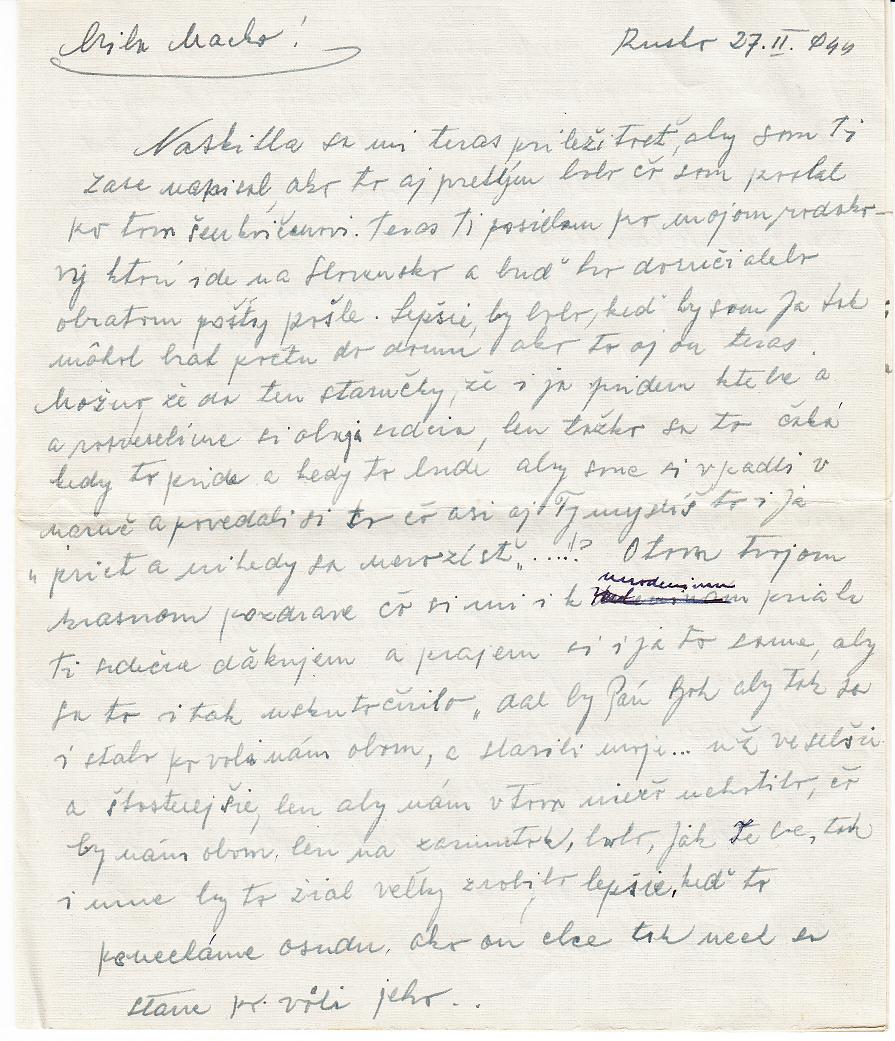 Milá Macko!
Rusko 27.II. 944
Naskitla sa mi teras priležitosť, aby som Ti
zase napisal, ako to aj predtým bolo čo som poslal
po tom šenkvičanovi. Teras Ti posielam po mojom rodako-
vý ktorí ide na Slovensko a buď ho doručí alebo
obratom pošty pošle. Lepšie, by bolo, keď by som ja tak
môhol brat do domu ako to aj on teras.
Možno, že do ten staručky, že i ja pridem ktebe a
a rosveselíme si obaja srdcia, len tažko sa to čaká
kedy to pride a kedy to bude aby sme si vpadli v
naruč a povedali si to čo asi aj Ty myslíš to i ja
„prist a nikedy sa nerozísť„ ....!? O tom tvojom
krasnom pozdrave čo si mi i k narodeninam priala
Ti srdečne ďăkujem a prajem si i ja to same, aby
sa to i tak uskutočnilo „dal by Pán Boh aby tak sa
i stalo po voli nám obom, a slavili moje... už veselšie
a štastnejšie, len aby nám vtom niečo nehatilo, čo
by nám obom len na zarmutok, bolo, jak Tebe, tak
i mne by to žial velky zrobilo, lepšie, keď to
ponecháme osudu, ako on chce tak nech sa
stane po vôli jeho..